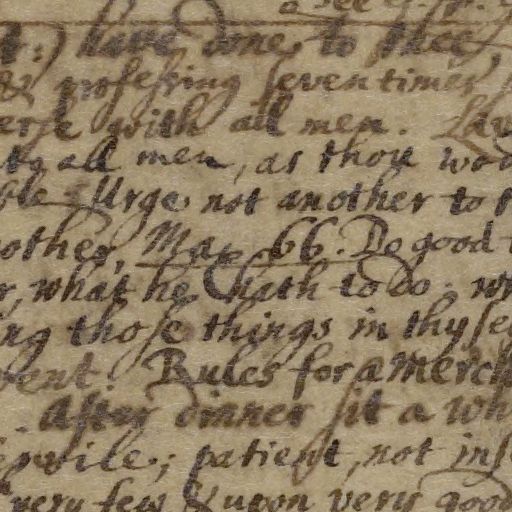 See
have done to thee,
& professing seven times,
with all men. Lav
to all men, as thou wo
Urge not another to
other, Mat. 66. Do good
what he hath to do. w
ng those things in thy se
vent. Rules for a merch
After dinner sit a wh
vile; patient, not ins
very few & upon very good